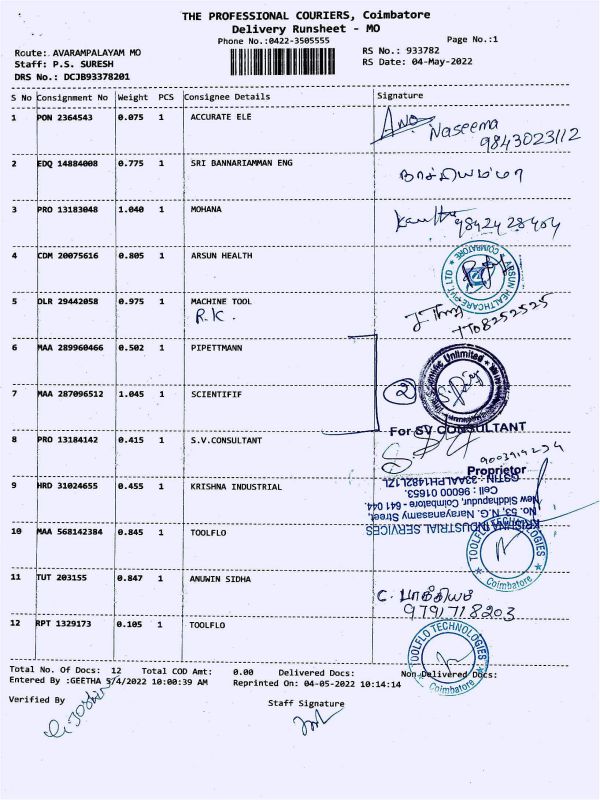 THE PROFESSIONAL COURIERS, Coimbatore
Delivery Runsheet - MO
Phone No.:0422-3505555
Page No.:1
Route: AVARAMPALAYAM MO
RS No.: 933782
Staff: P.S. SURESH
RS Date: 04-May-2022
DRS No.: DCJB93378201
S No Consignment No Weight PCS Consignee Details Signature
1 PON 2364543 0.075 1 ACCURATE ELE
Naseema
9843023112
2 EDQ 14884008 0.775 1 SRI BANNARIAMMAN ENG
நாச்சியம்மா
3 PRO 13183048 1.040 1 MOHANA
4 CDM 20075616 0.805 1 ARSUN HEALTH
ARSUN HEALTHCARE PVT LTD
COIMBATORE
5 DLR 29442058 0.975 1 MACHINE TOOL
R.K.
7708252525
6 MAA 289960466 0.502 1 PIPETTMANN
Scientific Unlimited
7 MAA 287096512 1.045 1 SCIENTIFIF
2
For SV CONSULTANT
8 PRO 13184142 0.415 1 S.V.CONSULTANT
Proprietor
9 HRD 31024655 0.455 1 KRISHNA INDUSTRIAL
KRISHNA INDUSTRIAL SERVICES
No. 53, N.G. Narayanasamy Street,
New Siddhapudur, Coimbatore - 641 044.
Cell : 96000 01653.
10 MAA 568142384 0.845 1 TOOLFLO
TOOLFLO TECHNOLOGIES
Coimbatore
11 TUT 203155 0.847 1 ANUWIN SIDHA
9791718203
12 RPT 1329173 0.105 1 TOOLFLO
TOOLFLO TECHNOLOGIES
Coimbatore
Total No. Of Docs: 12 Total COD Amt: 0.00 Delivered Docs: Non-Delivered Docs:
Entered By :GEETHA 5/4/2022 10:00:39 AM Reprinted On: 04-05-2022 10:14:14
Verified By
Staff Signature